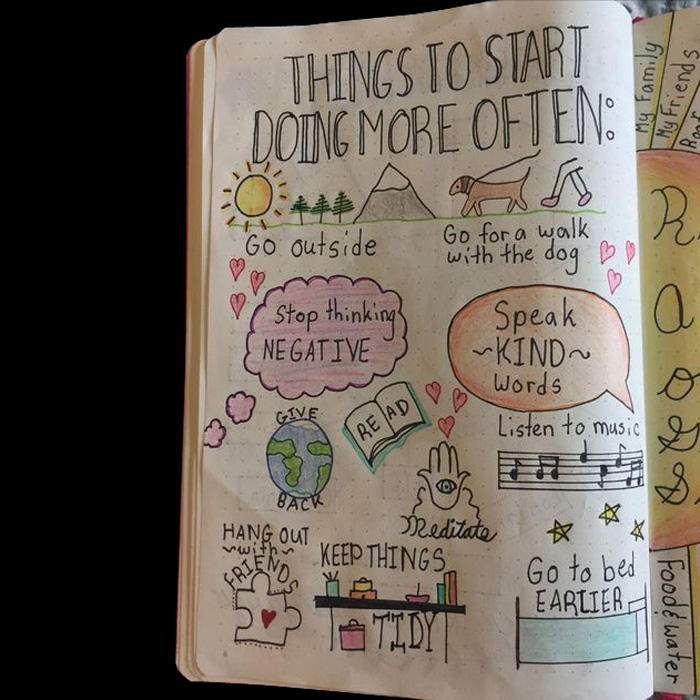 THINGS TO START
DOING MORE OFTEN:
Go outside
Go for a walk
with the dog
Stop thinking
NEGATIVE
Speak
~KIND~
words
GIVE
BACK
READ
Listen to music
Meditate
HANG OUT
~with~
FRIENDS
KEEP THINGS
TIDY
Go to bed
EARLIER
My Family
My Friends
Food & water